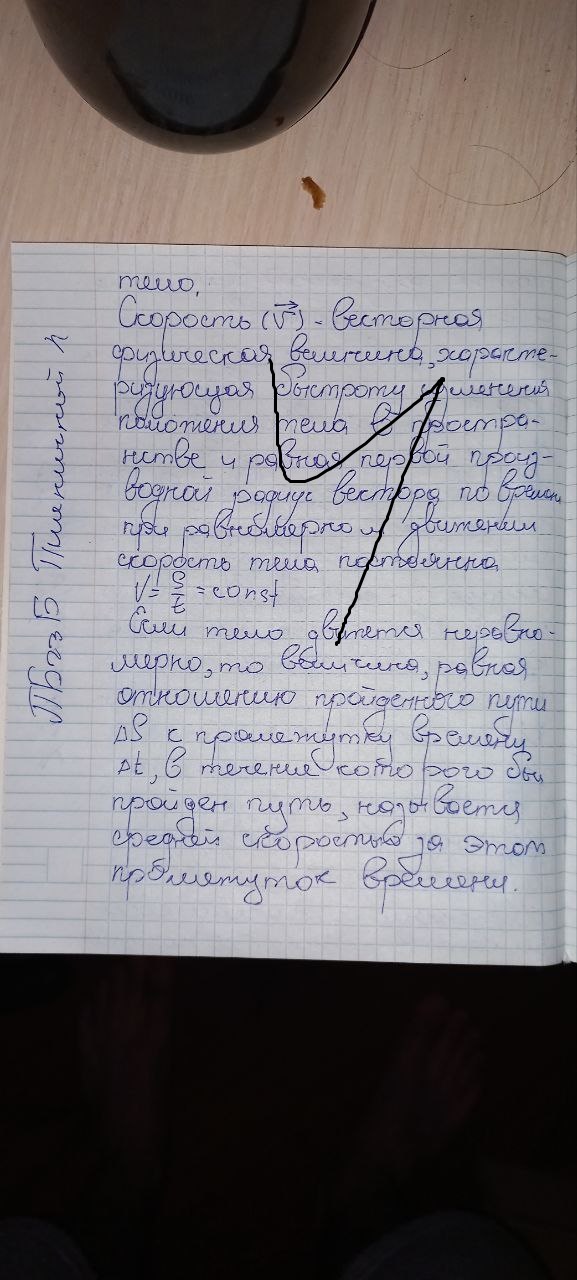 тело.
Скорость (V) - векторная
физическая величина, характе-
ризующая быстроту изменения
положения тела в простра-
нстве и равная первой произ-
водной радиус вектора по времени
при равномерном движении
скорость тела постоянна
V = S/t = const
Если тело движется неравно-
мерно, то величина, равная
отношению пройденного пути
ΔS к промежутку времени
Δt, в течение которого был
пройден путь, называется
средней скоростью за этом
промежуток времени.